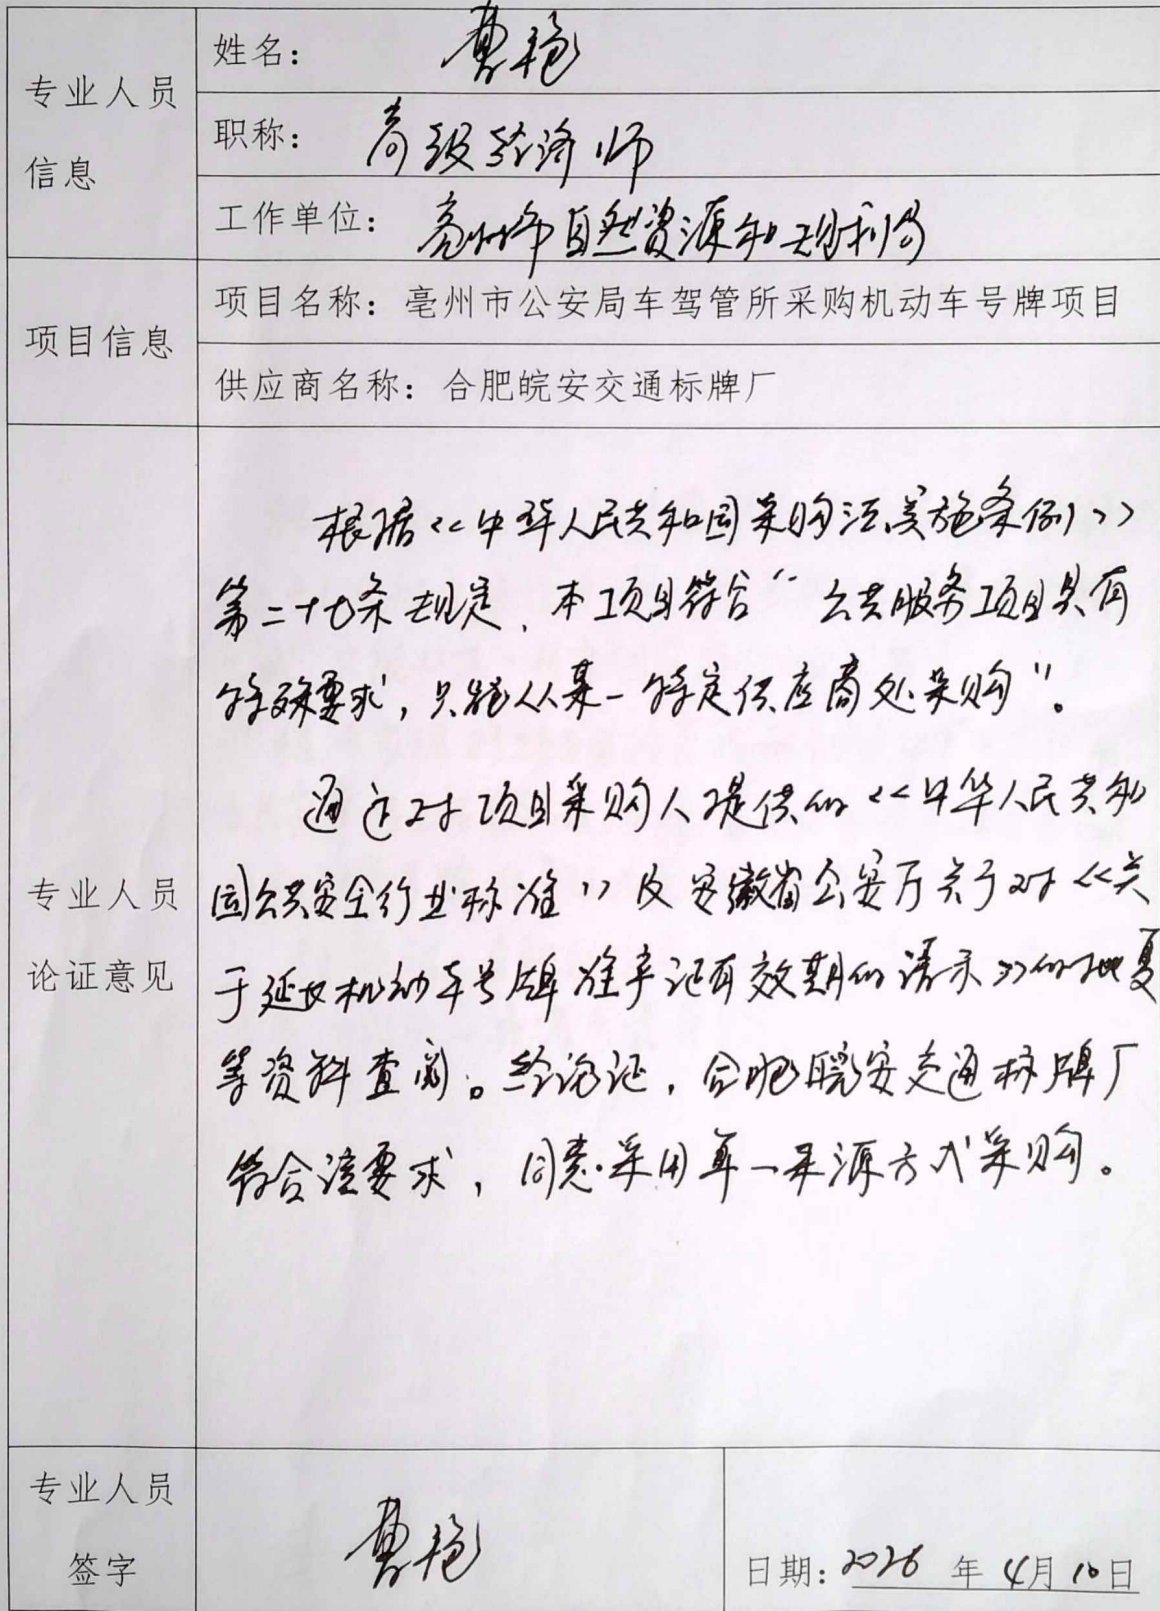 专业人员
信息
姓名：曹艳
职称：高级经济师
工作单位：亳州市自然资源和规划局
项目信息
项目名称：亳州市公安局车驾管所采购机动车号牌项目
供应商名称：合肥皖安交通标牌厂
专业人员
论证意见
根据<<中华人民共和国采购法实施条例>>
第二十七条规定，本项目符合“公共服务项目具有
特殊要求，只能从某一特定供应商处采购”。
通过对项目采购人提供的<<中华人民共和
国公共安全行业标准>>及安徽省公安厅关于对<<关
于延长机动车号牌准产证有效期的请示>>的批复
等资料查阅。经论证，合肥皖安交通标牌厂
符合该要求，同意采用单一来源方式采购。
专业人员
签字
曹艳
日期：2026年4月10日